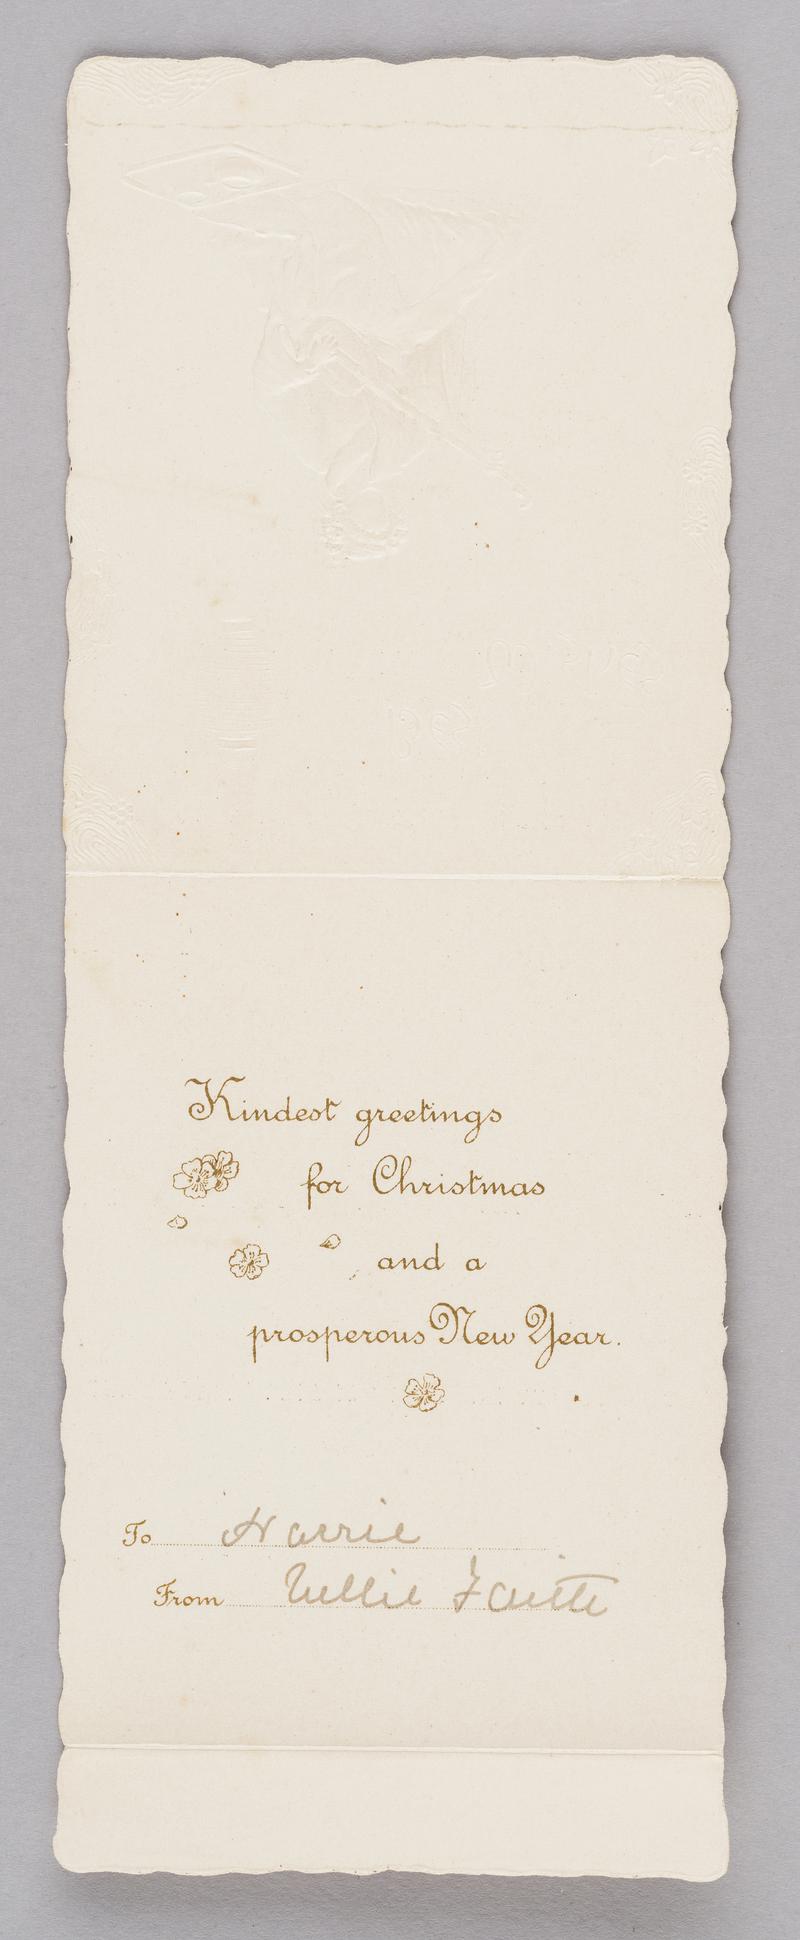 Kindest greetings
for Christmas
and a
prosperous New Year.
To Harrie
From Nellie Faith